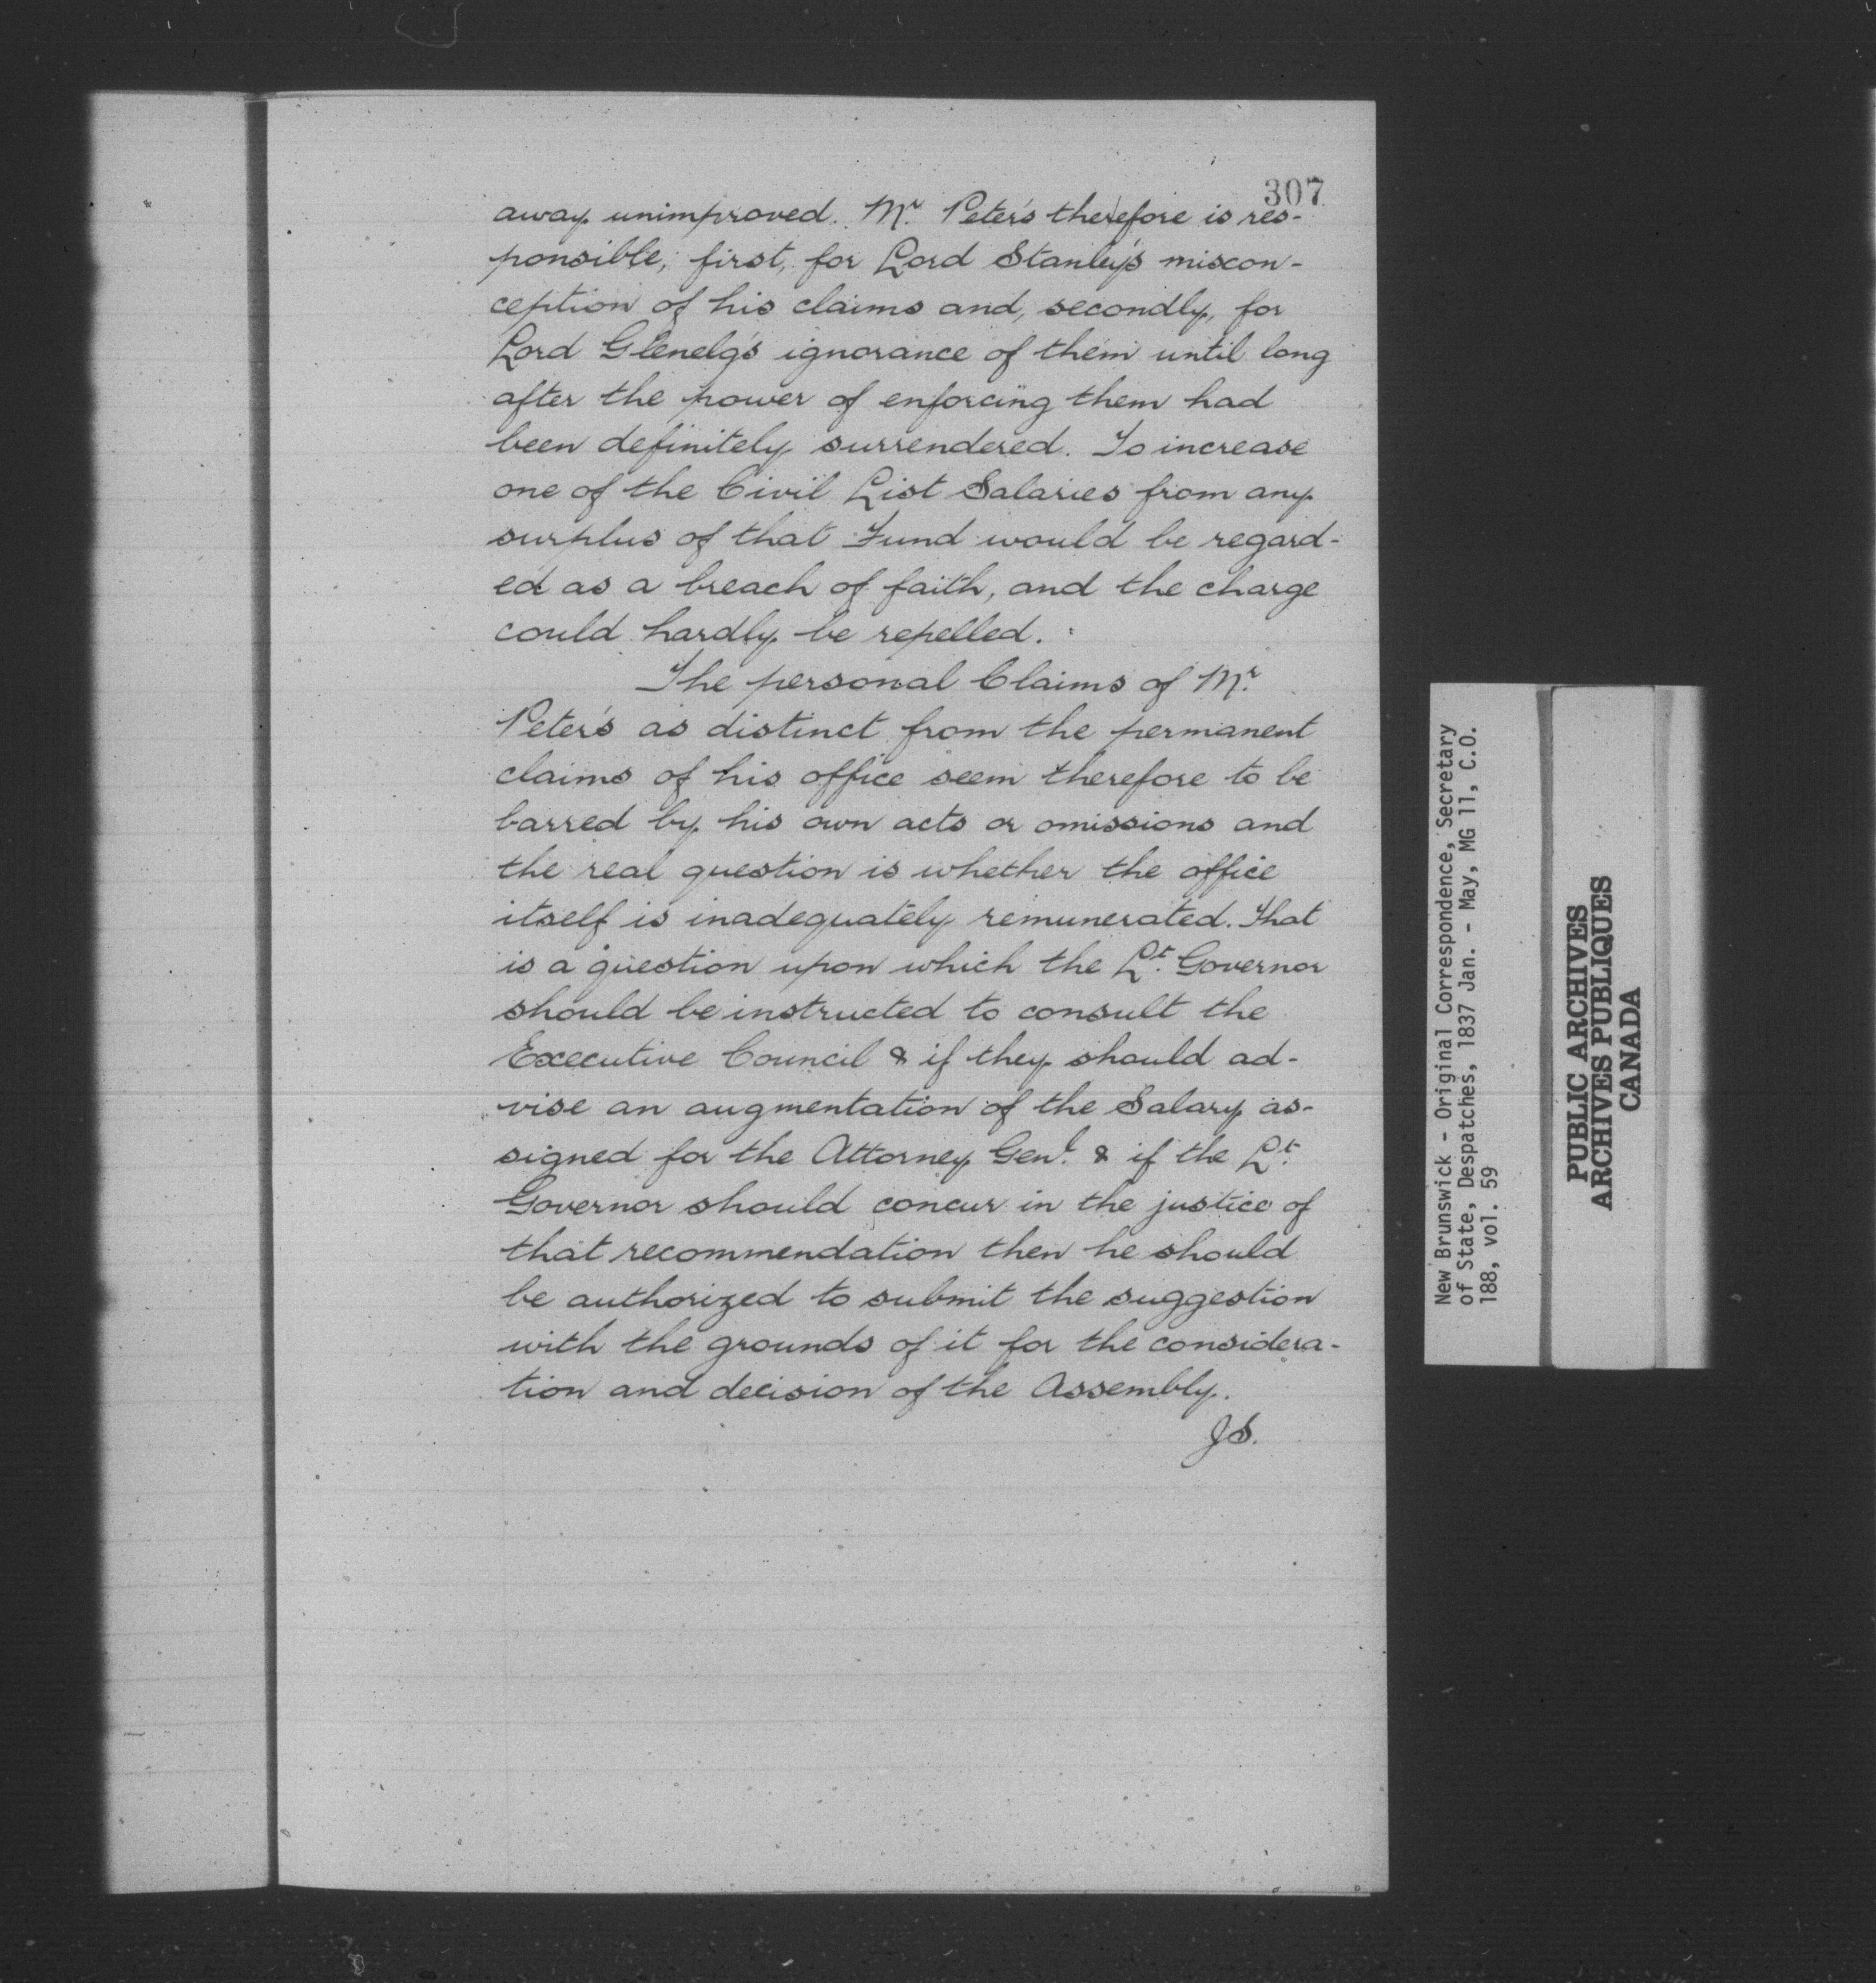 307
away unimproved. Mr. Peter's therefore is res-
ponsible, first, for Lord Stanley's miscon-
ception of his claims and, secondly, for
Lord Glenelg's ignorance of them until long
after the power of enforcing them had
been definitely surrendered. To increase
one of the Civil List Salaries from any
surplus of that Fund would be regard-
ed as a breach of faith, and the charge
could hardly be repelled.
The personal Claims of Mr.
Peter's as distinct from the permanent
claims of his office seem therefore to be
barred by his own acts or omissions and
the real question is whether the office
itself is inadequately remunerated. That
is a question upon which the Lt. Governor
should be instructed to consult the
Executive Council & if they should ad-
vise an augmentation of the Salary as-
signed for the Attorney Genl. & if the Lt.
Governor should concur in the justice of
that recommendation then he should
be authorized to submit the suggestion
with the grounds of it for the considera-
tion and decision of the Assembly.
JS.
New Brunswick - Original Correspondence, Secretary
of State, Despatches, 1837 Jan. - May, MG 11, C.O.
188, vol. 59
PUBLIC ARCHIVES
ARCHIVES PUBLIQUES
CANADA